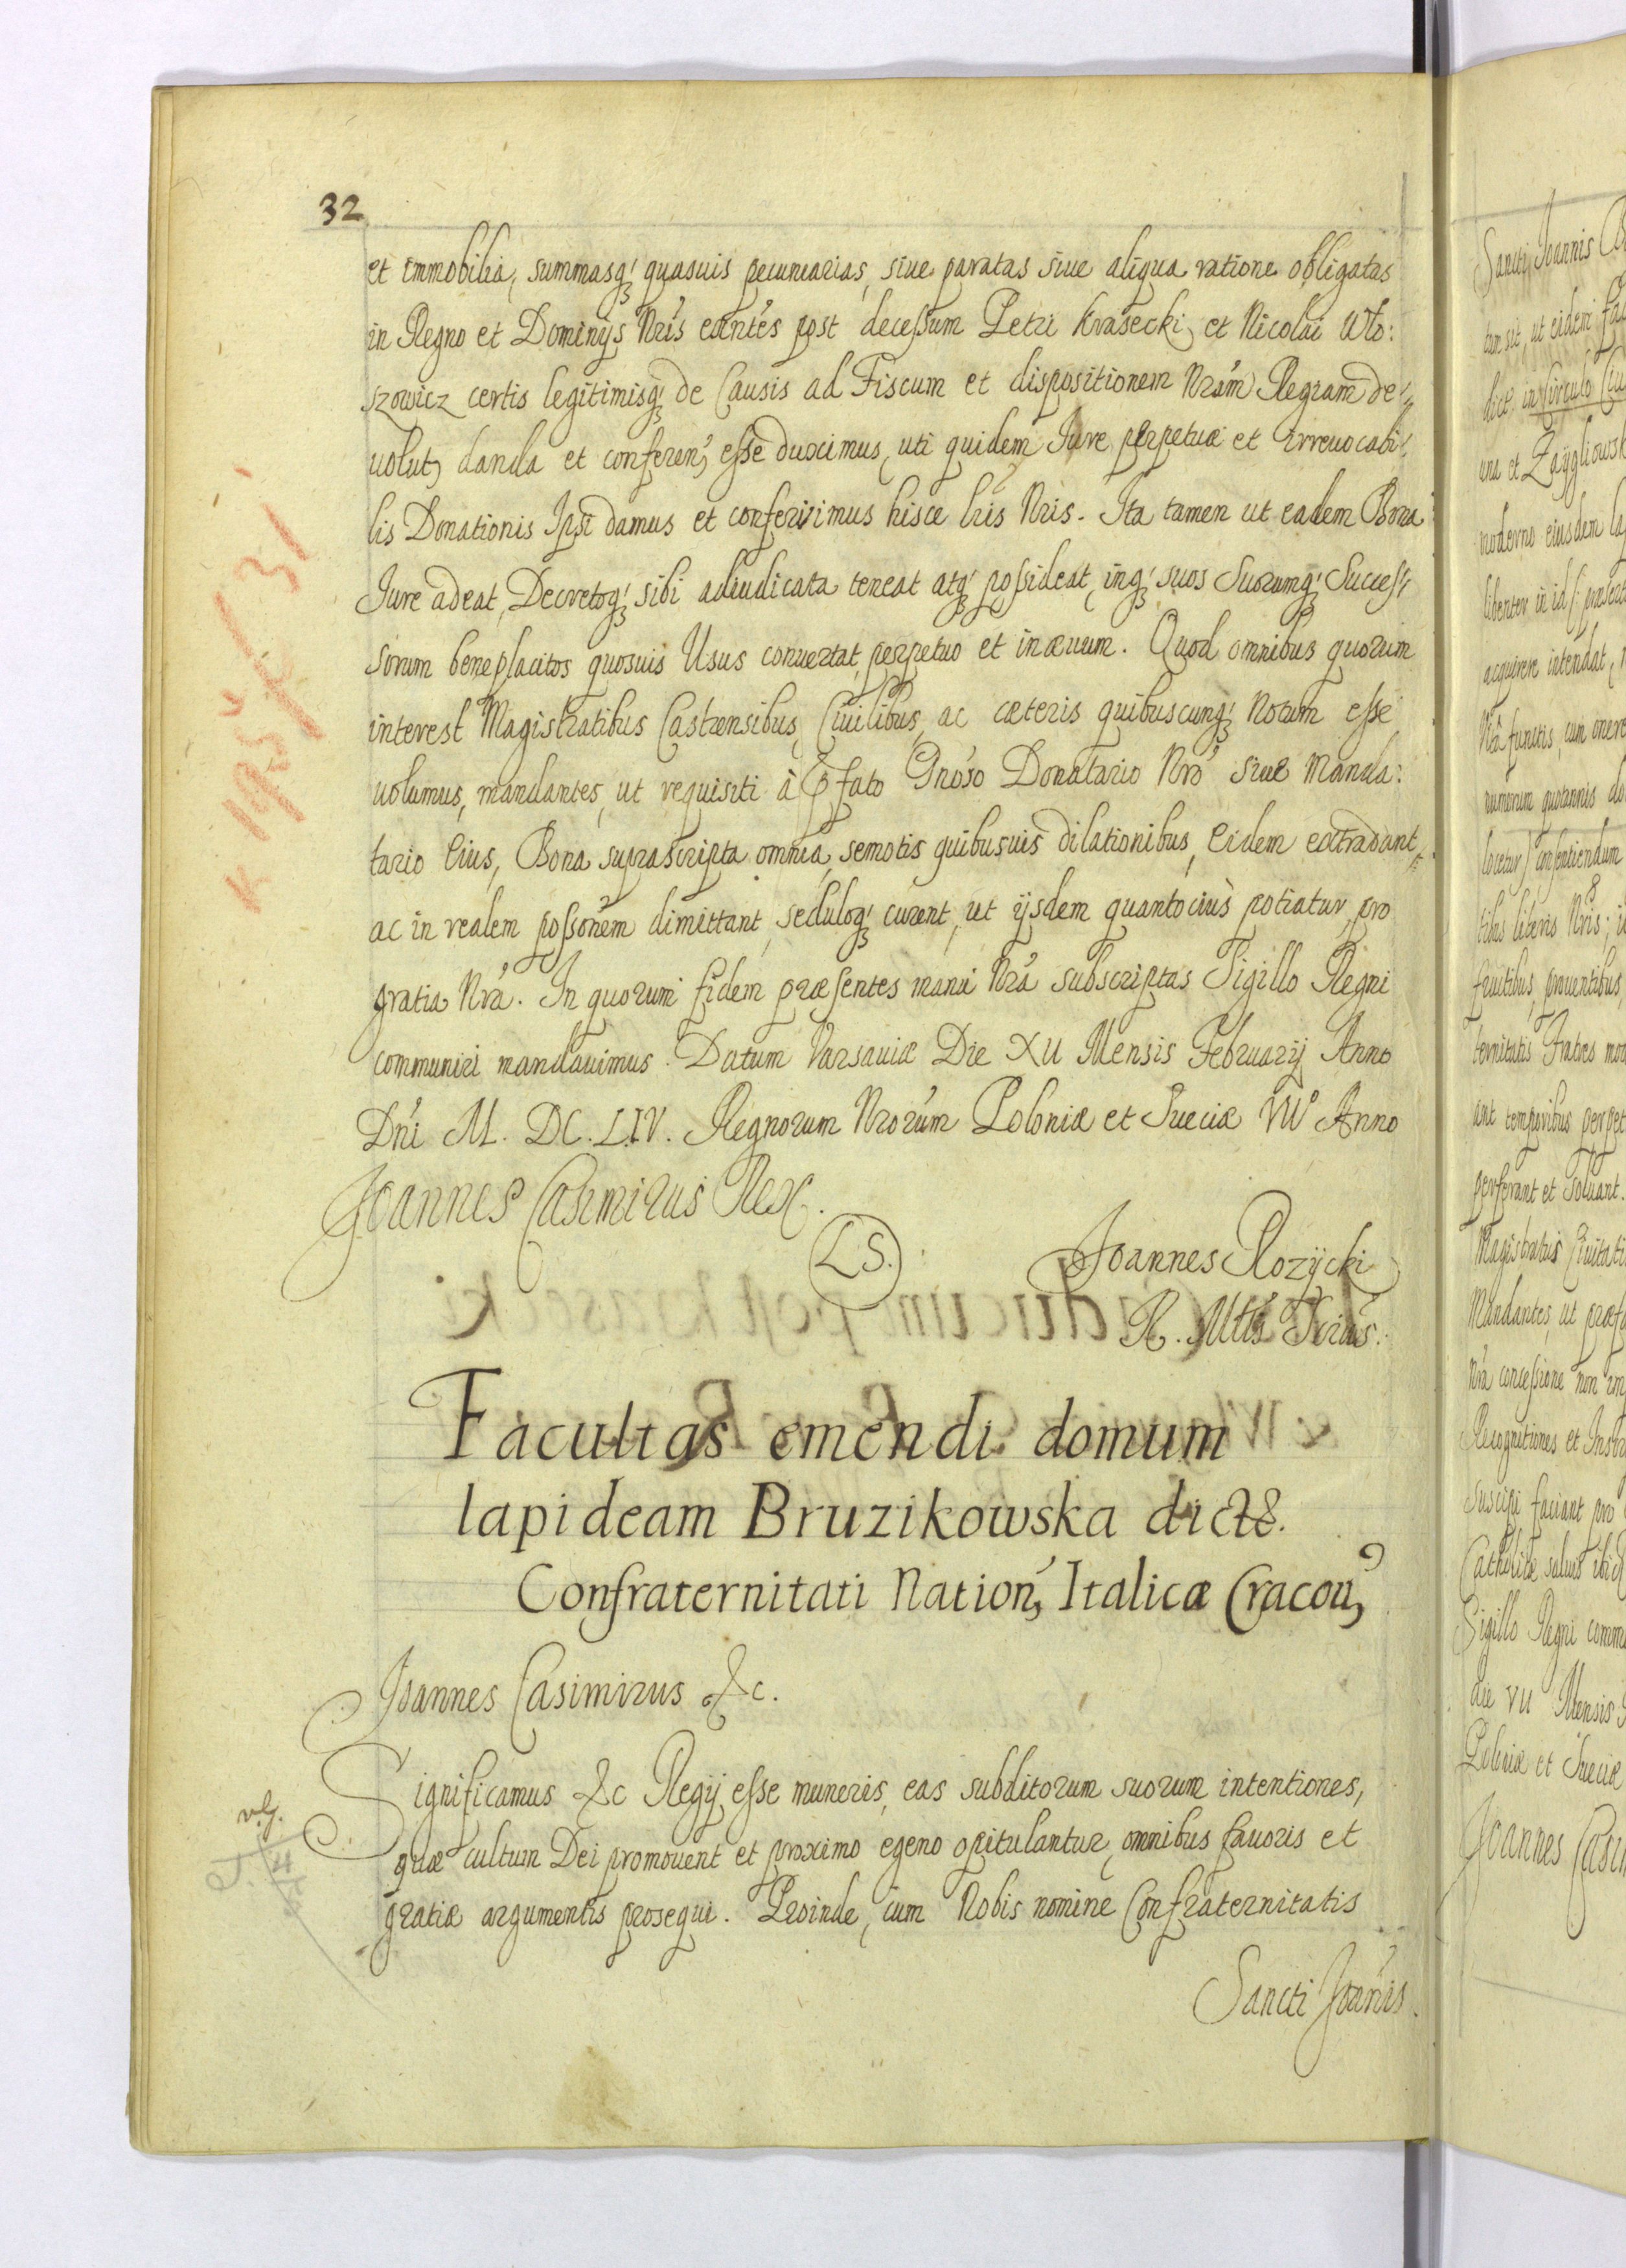 32
et immobilia, summasq́ʒ quasuis pecuniarias, siue paratas siue aliqua ratione obligatas
in Regno et Dominijs Nrı́s exn̄tes post decessum Petri Krasecki, et Nicolai Wło:
szowicz certis legitimisq́ʒ de Causis ad Fiscum et dispositionem Nrám Regiam de⸗
uolut, danda et conferen, esse duximus, uti quidem Iure perpetuæ et irreuocabi⸗
lis Donationis Ipsi damus et conferimus hisce lrı́s Nrı́s. Ita tamen ut eadem Bona
Iure adeat, Decretoq́ʒ sibi adiudicata teneat atq́ʒ possideat, inq́ʒ suos Suorumq́ʒ Succes⸗
sorum beneplacitos quosuis Usus conuertat, perpetuo et in æuum. Quod omnibus quorum
interest Magistratibus Castrensibus, Ciuilibus, ac cæteris quibuscunq́ʒ Notum esse
uolumus, mandantes, ut requisiti à ꝑfato Gnóso Donatario Nró siue Manda:
tario Eius, Bona suprascripta omnia, semotis quibusuis dilationibus, Eidem extradant,
ac in realem possonem dimittant, seduloq́ʒ curent, ut ijsdem quantocius potiatur, pro
gratia Nrá. In quorum fidem præsentes manu Nrá subscriptas Sigillo Regni
communiri mandauimus. Datum Varsauiæ Die XII Mensis Februarij Anno
Dnı́ M. DC. LIV. Regnorum Nrórum Poloniæ et Sueciæ VIº Anno
Joannes Casimirus Rex.
L.S.
Joannes Rozycki
R. Mtı́s Scrius.
Facultas emendi domum
lapideam Bruzikowska dictã.
Confraternitati Nation, Italicæ Cracou,
Joannes Casimirus &c.
Significamus &c Regij esse muneris, eas subditorum suorum intentiones,
quæ cultum Dei promouent et proximo egeno opitulantur, omnibus fauoris et
gratiæ argumentis prosequi. Proinde, cum Nobis nomine Confraternitatis
Sancti Joánis.